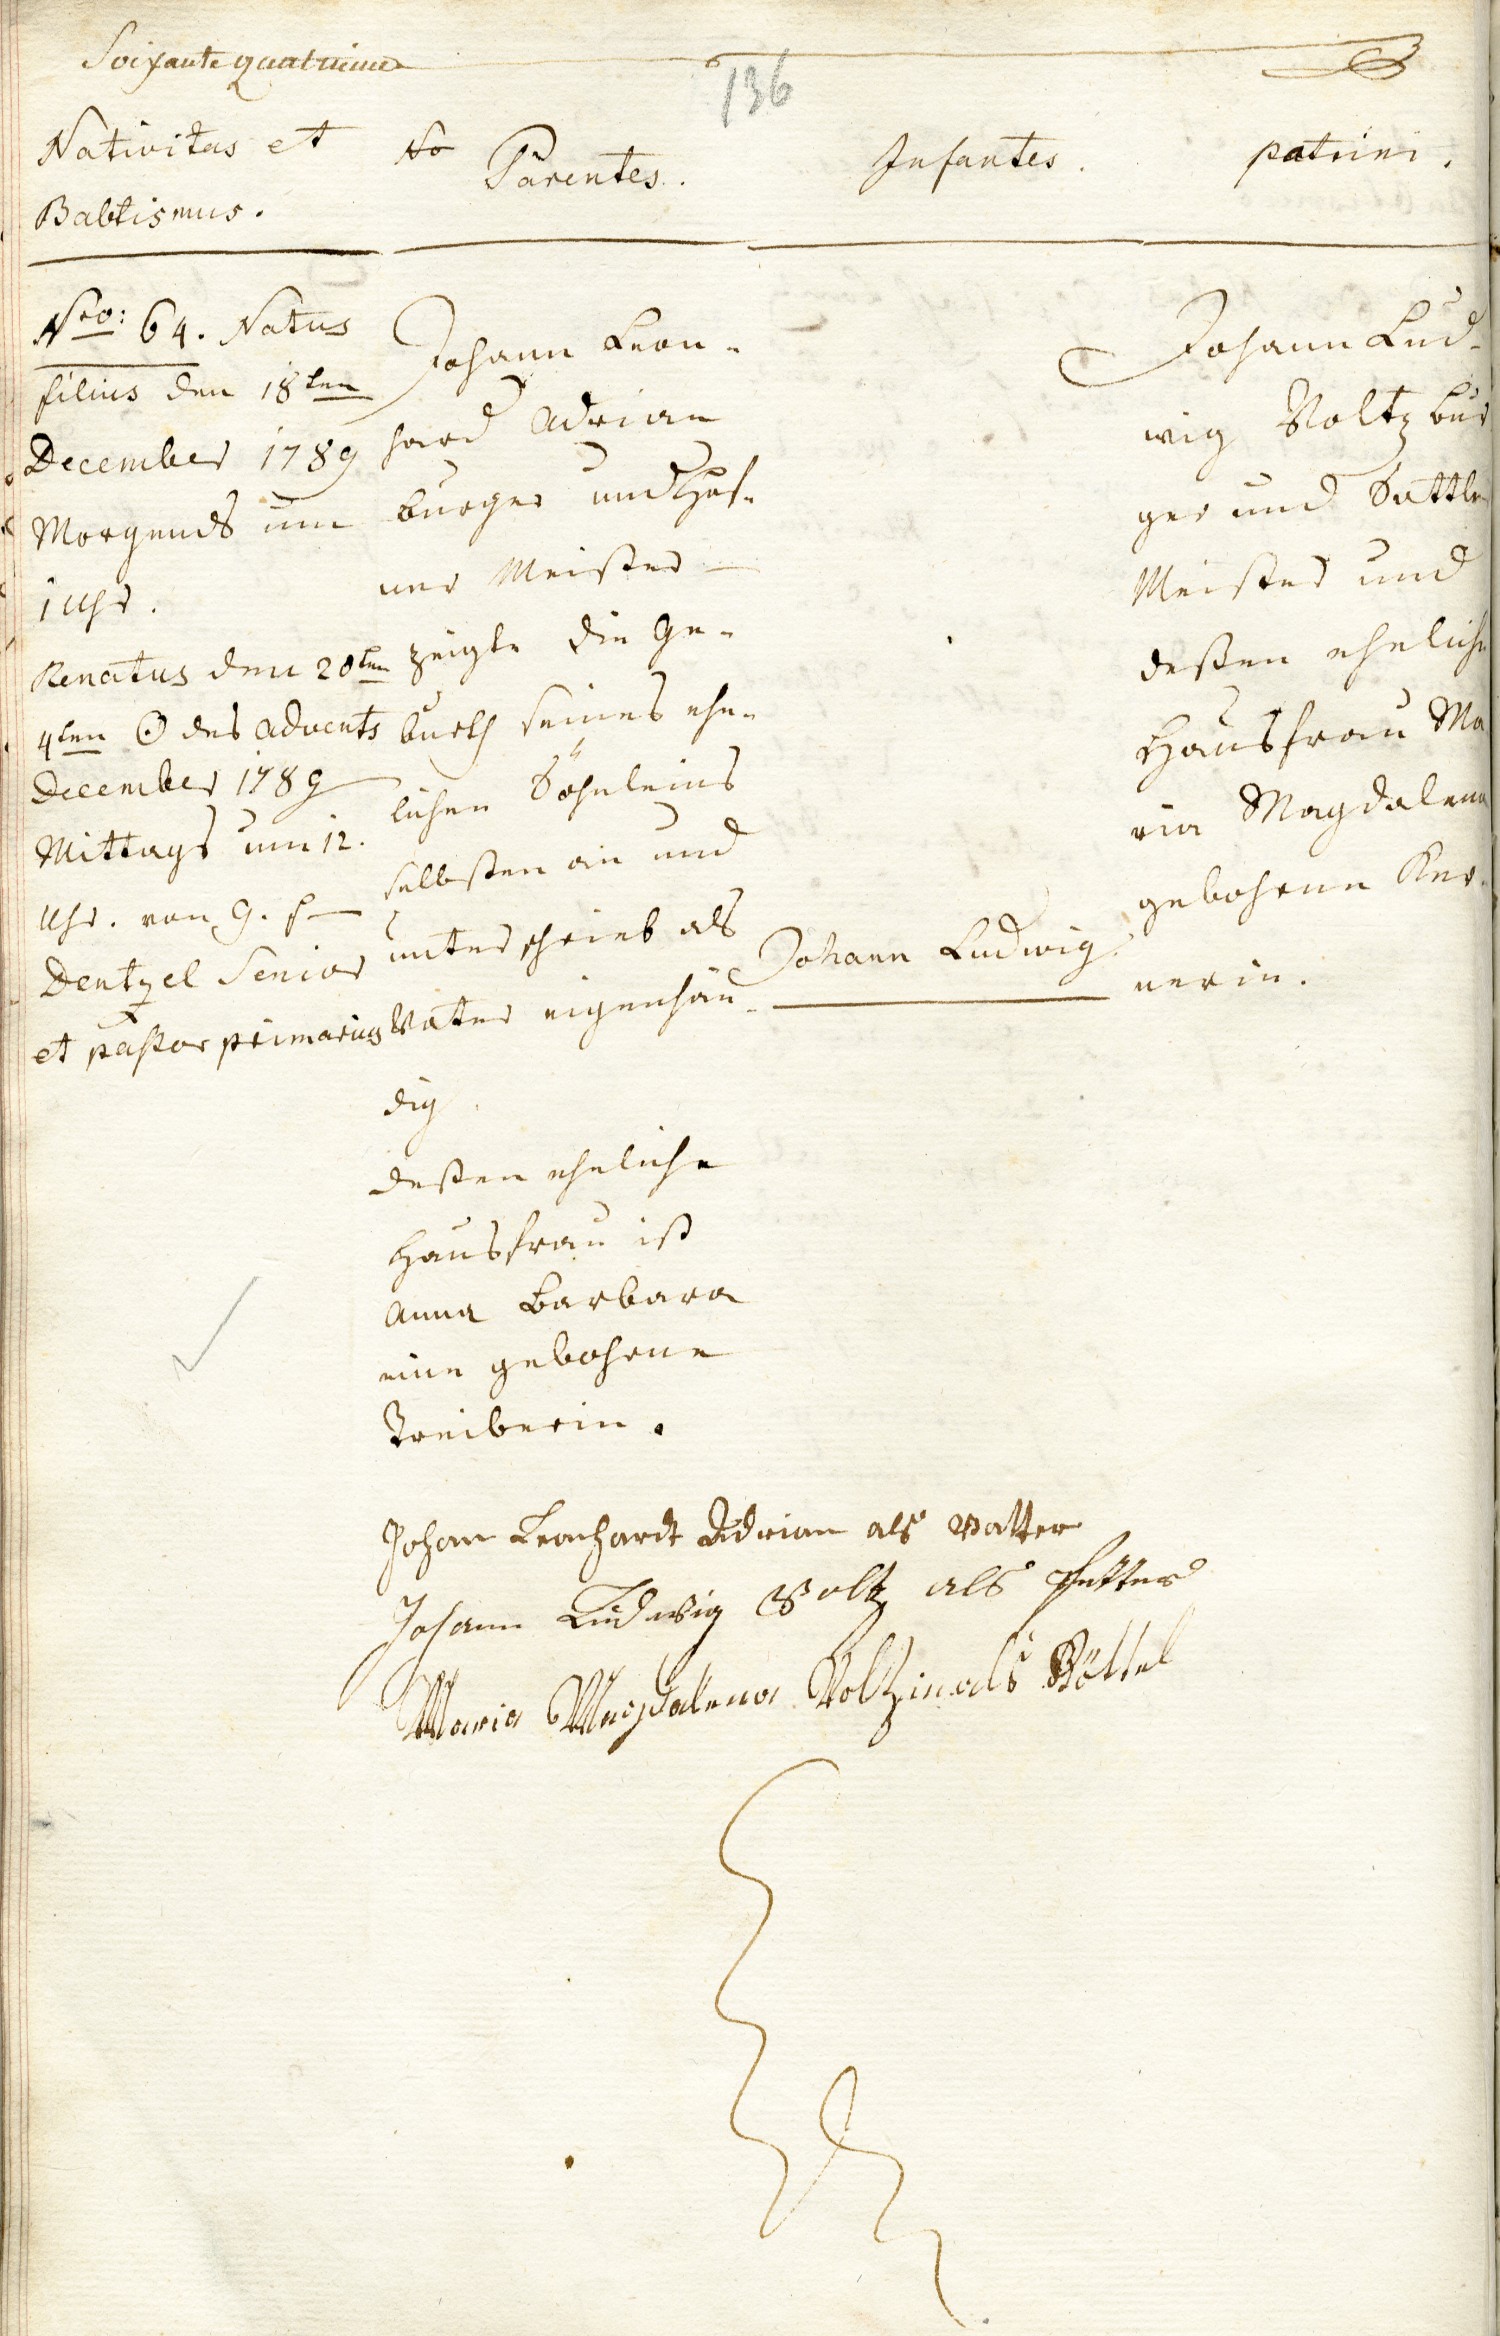 Soixante quatrieme
136
Nativitas et
Babtismus.
No Parentes.
Infantes.
patrini.
Nro: 64. Natus
filius den 18ten
December 1789
Morgends um
1 Uhr.
Renatus den 20ten
4ten ☉ des Advents
December 1789
Mittags um 12.
Uhr. von G. F
Dentzel Senior
et pastor primarius
Johann Leon-
hard Adrian
burger und Haf-
ner Meister
zeigte die Ge-
burth seines ehe-
lichen Söhnleins
selbsten an und
unterschrieb als
Vater eigenhän-
dig
deßen eheliche
Hausfrau ist
Anna Barbara
eine gebohrne
Treiberin.
Johann Ludwig
Johann Lud-
wig Voltz bur
ger und Sattler
Meister und
deßen eheliche
Hausfrau Ma
ria Magdalena
gebohrne Ker-
nerin.
Johan Leonhardt Adrian als Vatter
Johann Ludwig Voltz als Pfetter
Maria Magdalena Voltzin als Göttel